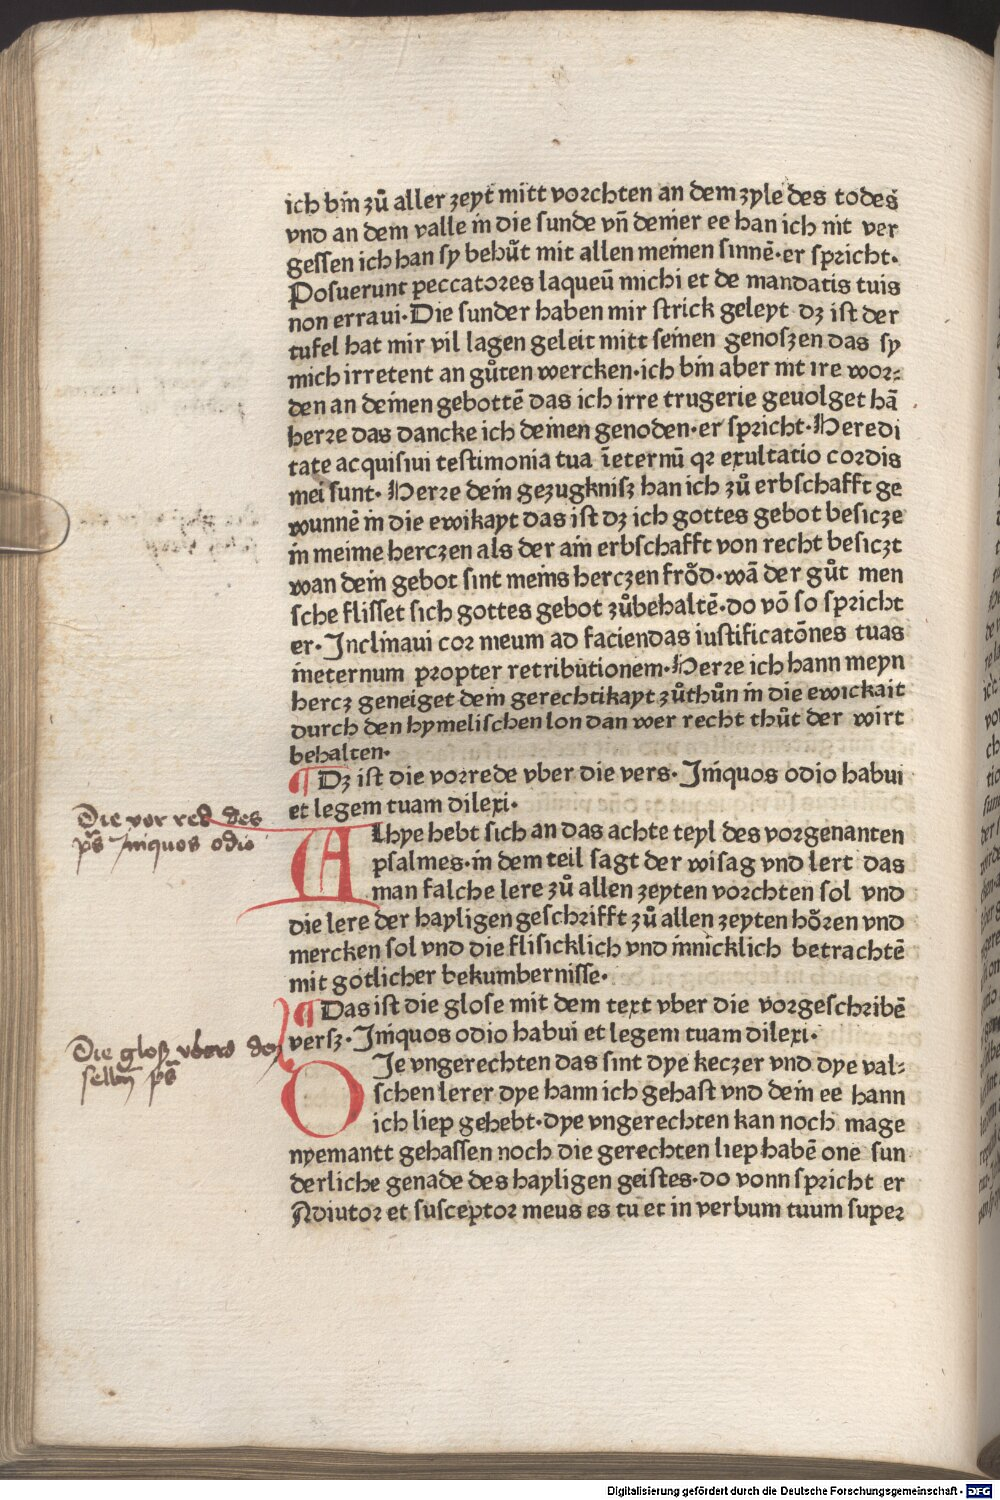 ich bin zů aller zeyt mitt vorchten an dem zyle des todes
vnd an dem valle in die sunde vñ deiner ee han ich nit ver
gessen ich han sy behůt mit allen meinen sinnē·er spricht·
Posuerunt peccatores laqueū michi et de mandatis tuis
non erraui·Die sunder haben mir strick geleyt dz ist der
tufel hat mir vil lagen geleit mitt seinen genoszen das sy
mich irretent an gůten wercken·ich bin aber nit ire wor⸗
den an deinen gebottē das ich irre trugerie geuolget hā
herre das dancke ich deinen genoden·er spricht·Heredi
tate acquisiui testimonia tua īeternū qr exultatio cordis
mei sunt· Herre dein gezugknisz han ich zů erbschafft ge
wunnē in die ewikayt das ist dz ich gottes gebot besicze
in meime herczen als der ain erbschafft von recht besiczt
wan dein gebot sint meins herczen frőd·wā der gůt men
sche flisset sich gottes gebot zůbehaltē·do vō so spricht
er·Inclinaui cor meum ad faciendas iustificatōnes tuas
ineternum propter retributionem·Herre ich hann meyn
hercz geneiget dein gerechtikayt zůthůn in die ewickait
durch den hymelischen lon dan wer recht thůt der wirt
behalten·
¶ Dz ist die vorrede vber die vers· Iniquos odio habui
et legem tuam dilexi·
Die vor red des
ps Iniquos odio
Alhye hebt sich an das achte teyl des vorgenanten
psalmes·in dem teil sagt der wisag vnd lert das
man falche lere zů allen zeyten vorchten sol vnd
die lere der hayligen geschrifft zů allen zeyten hőren vnd
mercken sol vnd die flisicklich vnd innicklich betrachtē
mit gotlicher bekumbernisse·
¶ Das ist die glose mit dem text vber die vorgeschribē
versz·Iniquos odio habui et legem tuam dilexi·
Die gloß vbers den
selbn ps
DIe vngerechten das sint dye keczer vnd dye val⸗
schen lerer dye hann ich gehast vnd dein ee hann
ich liep gehebt·dye vngerechten kan noch mage
nyemantt gehassen noch die gerechten liep habē one sun
derliche genade des hayligen geistes·do vonn spricht er
Adiutor et susceptor meus es tu et in verbum tuum super
Digitalisierung gefördert durch die Deutsche Forschungsgemeinschaft · DFG